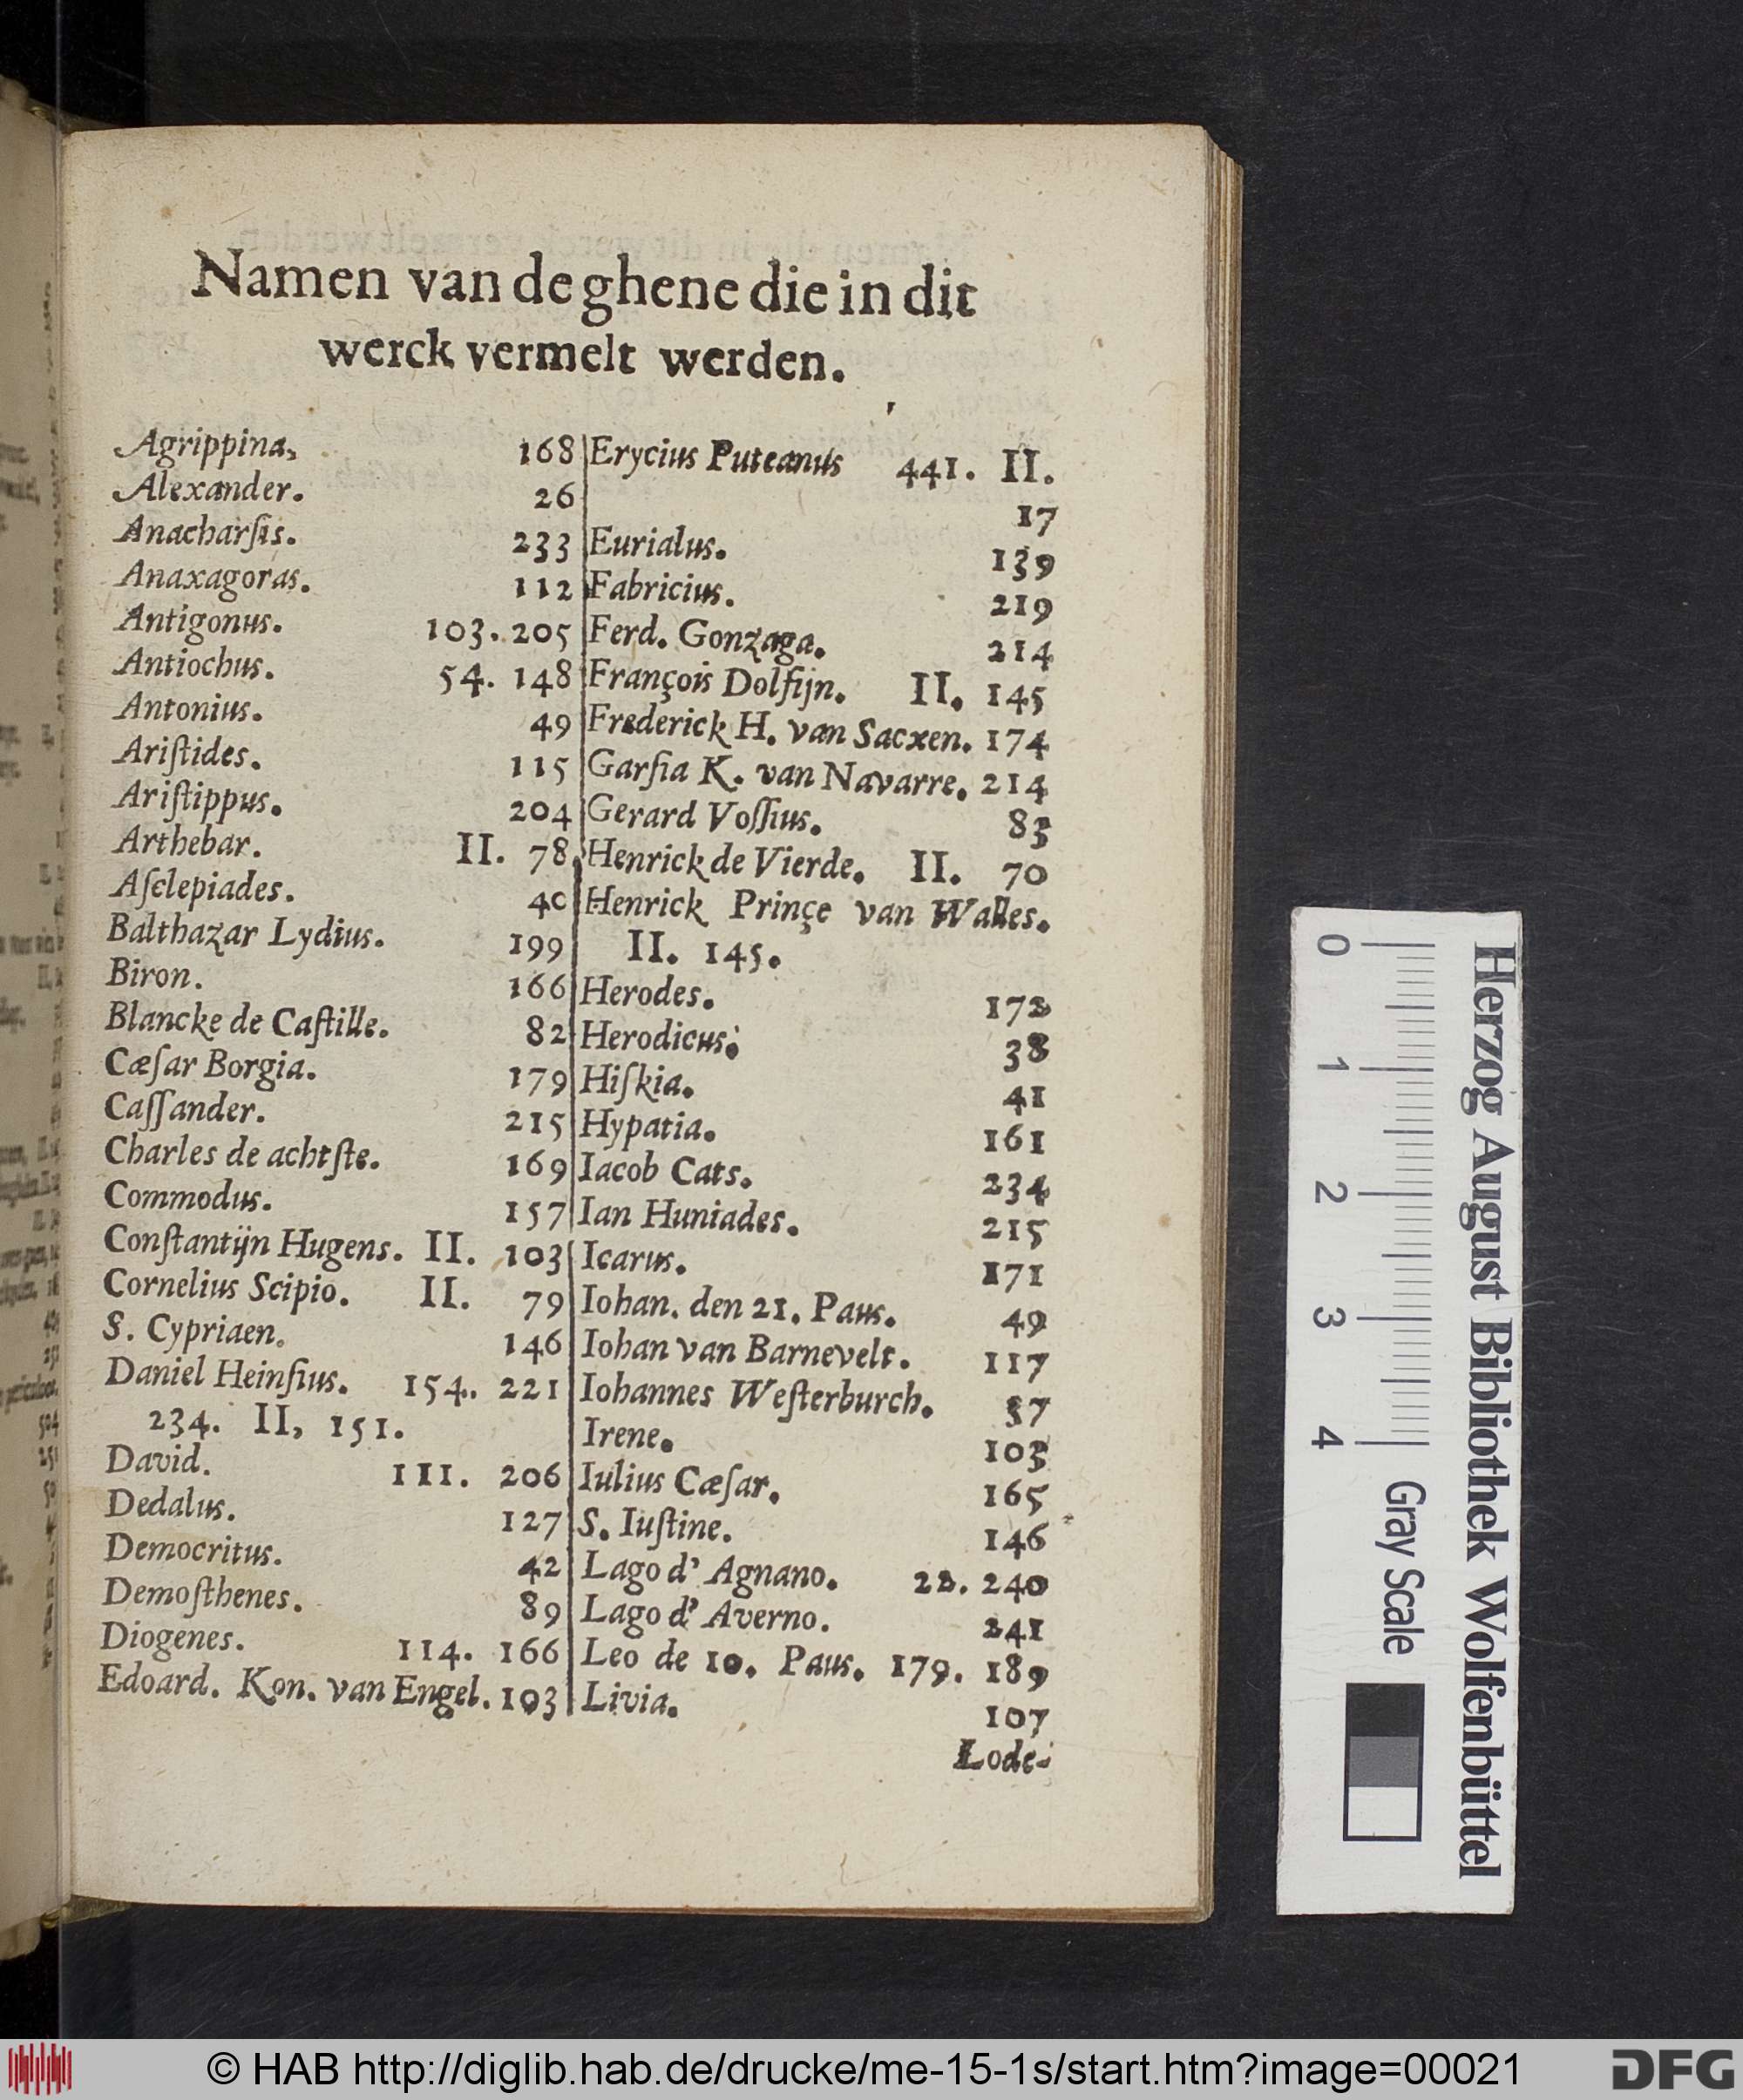 Namen van de ghene die in dit
werck vermelt werden.
Agrippina, 168
Alexander. 26
Anacharſis. 233
Anaxagoras. 112
Antigonus. 103. 205
Antiochus. 54. 148
Antonius. 49
Ariſtides. 115
Ariſtippus. 204
Arthebar. II. 78
Aſclepiades. 40
Balthazar Lydius. 199
Biron. 166
Blancke de Caſtille. 82
Cæſar Borgia. 179
Caſſander. 215
Charles de achtſte. 169
Commodus. 157
Conſtantijn Hugens. II. 103
Cornelius Scipio. II. 79
S. Cypriaen. 146
Daniel Heinſius. 154. 221
234. II, 151.
David. III. 206
Dedalus. 127
Democritus. 42
Demoſthenes. 89
Diogenes. 114. 166
Edoard. Kon. van Engel. 103
Erycius Puteanus 441. II.
17
Eurialus. 139
Fabricius. 219
Ferd. Gonzaga. 214
François Dolfijn. II. 145
Frederick H. van Sacxen. 174
Garſia K. van Navarre. 214
Gerard Voſſius. 83
Henrick de Vierde. II. 70
Henrick Prinçe van Walles.
II. 145.
Herodes. 172
Herodicus. 38
Hiſkia. 41
Hypatia. 161
Iacob Cats. 234
Ian Huniades. 215
Icarus. 171
Iohan. den 21. Paus. 49
Iohan van Barnevelt. 117
Iohannes Weſterburch. 37
Irene. 103
Iulius Cæſar. 165
S. Iuſtine. 146
Lago d' Agnano. 240
Lago d' Averno. 241
Leo de 10. Paus. 179. 189
Livia. 107
Lode-
Herzog August Bibliothek Wolfenbüttel
0 1 2 3 4 Gray Scale
© HAB http://diglib.hab.de/drucke/me-15-1s/start.htm?image=00021
DFG